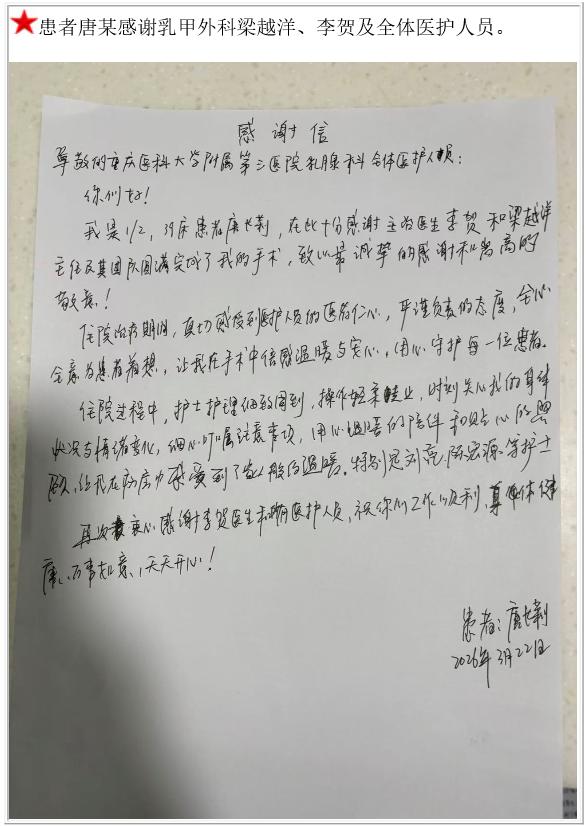 ★患者唐某感谢乳甲外科梁越洋、李贺及全体医护人员。
感谢信
尊敬的重庆医科大学附属第三医院乳腺科全体医护人员：
你们好！
我是1/2，39床患者唐，在此十分感谢主治医生李贺和梁越洋
主任及其团队圆满完成了我的手术，致以最诚挚的感谢和崇高的
敬意！
住院治疗期间，真切感受到医护人员的医者仁心，严谨负责的态度，全心
全意为患者着想，让我在手术中倍感温暖与安心，用心守护每一位患者。
住院过程中，护士护理细致周到，操作轻柔专业，时刻关心我的身体
状况与情绪变化，细心叮嘱注意事项，用心温暖的陪伴和贴心的照
顾，让我在病床感受到了家人般的温暖。特别是刘亮、陈宏源等护士
再次衷心感谢李贺医生和所有医护人员，祝你们工作顺利，身体健
康，万事如意，天天开心！
患者：唐
2026年3月22日